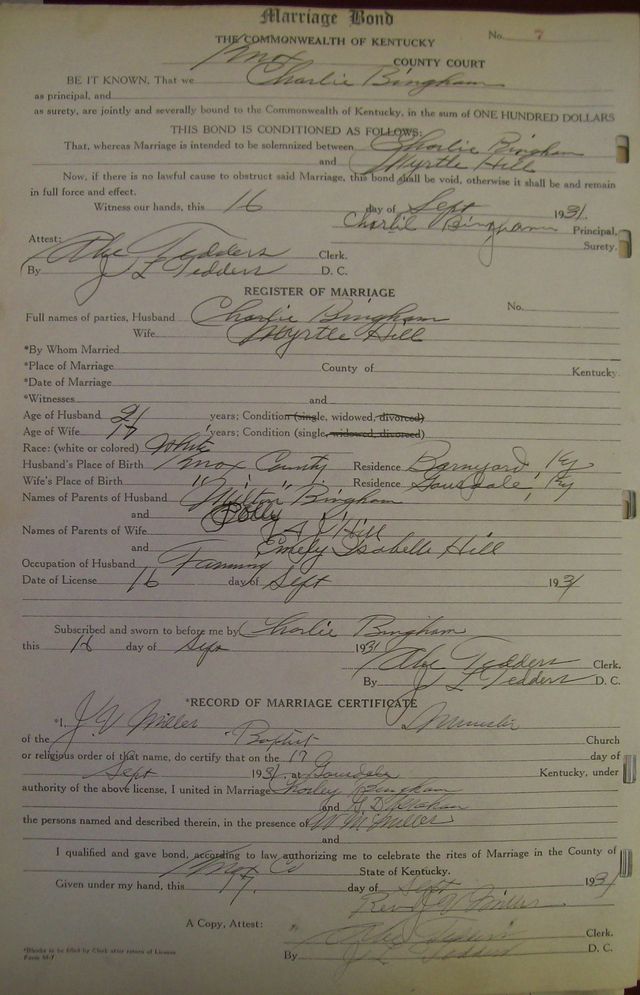 Marriage Bond
THE COMMONWEALTH OF KENTUCKY No. 7
Knox COUNTY COURT
BE IT KNOWN, That we Charlie Bingham
as principal, and
as surety, are jointly and severally bound to the Commonwealth of Kentucky, in the sum of ONE HUNDRED DOLLARS
THIS BOND IS CONDITIONED AS FOLLOWS:
That, whereas Marriage is intended to be solemnized between Charlie Bingham
and Myrtle Hill
Now, if there is no lawful cause to obstruct said Marriage, this bond shall be void, otherwise it shall be and remain
in full force and effect.
Witness our hands, this 16 day of Sept 1931.
Charlie Bingham Principal,
Surety.
Attest:
Abe Tedders Clerk.
By J L Tedders D. C.
REGISTER OF MARRIAGE
No.
Full names of parties, Husband Charlie Bingham
Wife Myrtle Hill
*By Whom Married
*Place of Marriage County of Kentucky
*Date of Marriage
*Witnesses and
Age of Husband 21 years; Condition (single, widowed, divorced)
Age of Wife 17 years; Condition (single, widowed, divorced)
Race: (white or colored) White
Husband's Place of Birth Knox County Residence Barnyard, Ky
Wife's Place of Birth " " Residence Gausdale, Ky
Names of Parents of Husband Milton Bingham
and Polly
Names of Parents of Wife Hill
and Emely Isabelle Hill
Occupation of Husband Farming
Date of License 16 day of Sept 1931
Subscribed and sworn to before me by Charlie Bingham
this 16 day of Sept 1931
Abe Tedders Clerk.
By J L Tedders D. C.
*RECORD OF MARRIAGE CERTIFICATE
*I, J. V. Miller Minister
of the Baptist Church
or religious order of that name, do certify that on the 17 day of
Sept 1931, at Gausdale Kentucky, under
authority of the above license, I united in Marriage Bingham
and
the persons named and described therein, in the presence of W M Miller
and
I qualified and gave bond, according to law authorizing me to celebrate the rites of Marriage in the County of
Knox Co State of Kentucky.
Given under my hand, this 17 day of Sept 1931
Rev J V Miller
A Copy, Attest:
Abe Tedders Clerk.
By J L Tedders D. C.
*Blanks to be filled by Clerk after return of License
Form M-7